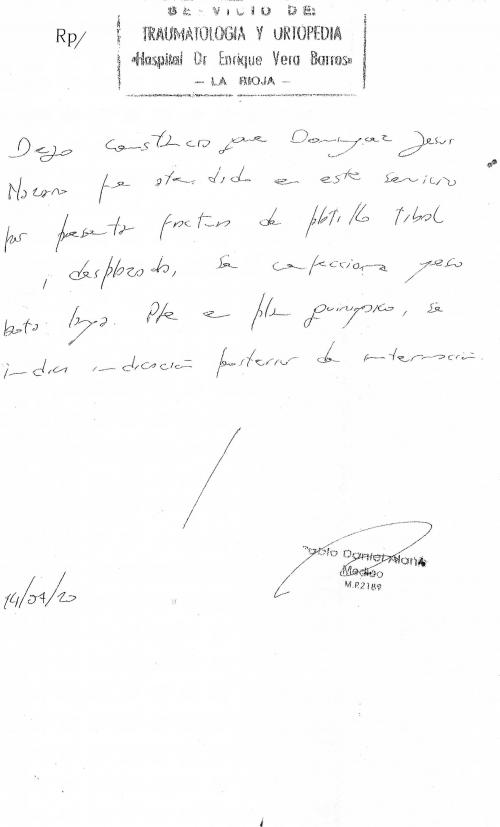 SERVICIO DE:
Rp/
TRAUMATOLOGIA Y ORTOPEDIA
«Hospital Dr Enrique Vera Barros»
– LA RIOJA –
Dejo constancia que Dominguez Jesus
fue atendido en este servicio
por presentar fractura de platillo tibial
desplazada, se confecciona yeso
bota larga. Pte en plan quirurgico, se
indica indicación posterior de internacion.
Pablo Daniel
Medico
M.P.2189